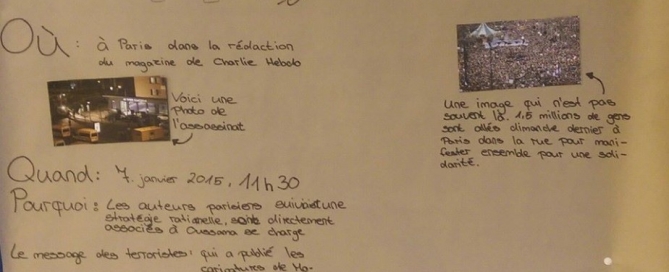 Où: à Paris dans la rédaction
du magazine de Charlie Hebdo
Voici une
photo de
l'assassinat
Une image qui n'est pas
souvent là. 1,5 millions de gens
sont allés dimanche dernier à
Paris dans la rue pour mani-
fester ensemble pour une soli-
darité.
Quand: 7. janvier 2015, 11h30
Pourquoi: Les auteurs parisiens suivaient une
stratégie rationelle, sont directement
associés à Oussama se charge
Le message des terroristes: qui a publié les
caricatures de Mo-